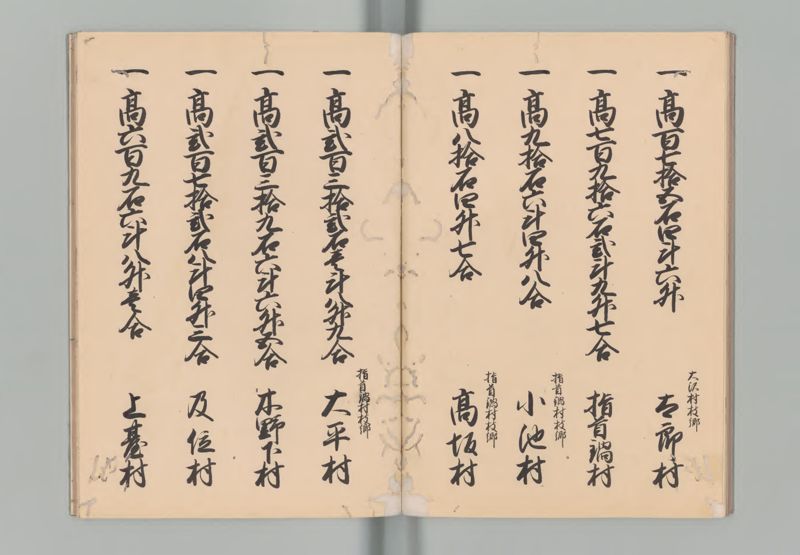 一 高百七拾五石四斗六升
大沢村枝郷
太郎村
一 高七百九拾六石弐斗九升七合
指首鍋村
一 高九拾石六斗四升八合
指首鍋村枝郷
小池村
一 高八拾石四升七合
指首鍋村枝郷
高坂村
一 高弐百三拾弐石壱斗八升九合
指首鍋村枝郷
大平村
一 高弐百三拾九石六斗六升五合
木野下村
一 高弐百七拾弐石八斗四升三合
及位村
一 高六百九石六斗八升壱合
上臺村